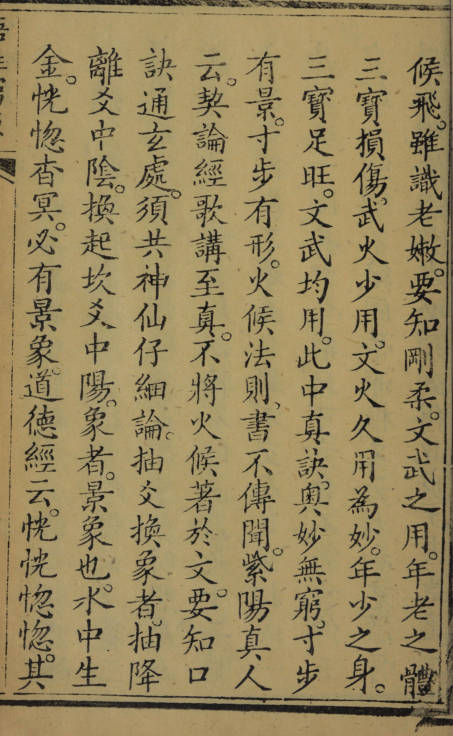 候飛。雖識老嫩。要知剛柔。文武之用。年老之體
三寶損傷。武火少用。文火久用為妙。年少之身。
三寶足旺。文武均用。此中真訣。奧妙無窮。寸步
有景。寸步有形。火候法則。書不傳聞。紫陽真人
云。契論經歌講至真。不將火候著於文。要知口
訣通玄處。須共神仙仔細論。抽爻換象者。抽降
離爻中陰。換起坎爻中陽。象者。景象也。水中生
金。恍惚杳冥。必有景象。道德經云。恍恍惚惚。其